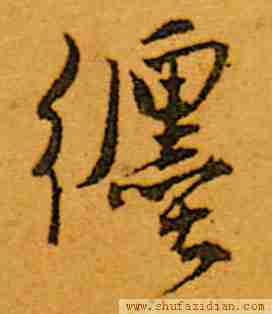 纏
www.shufazidian.com